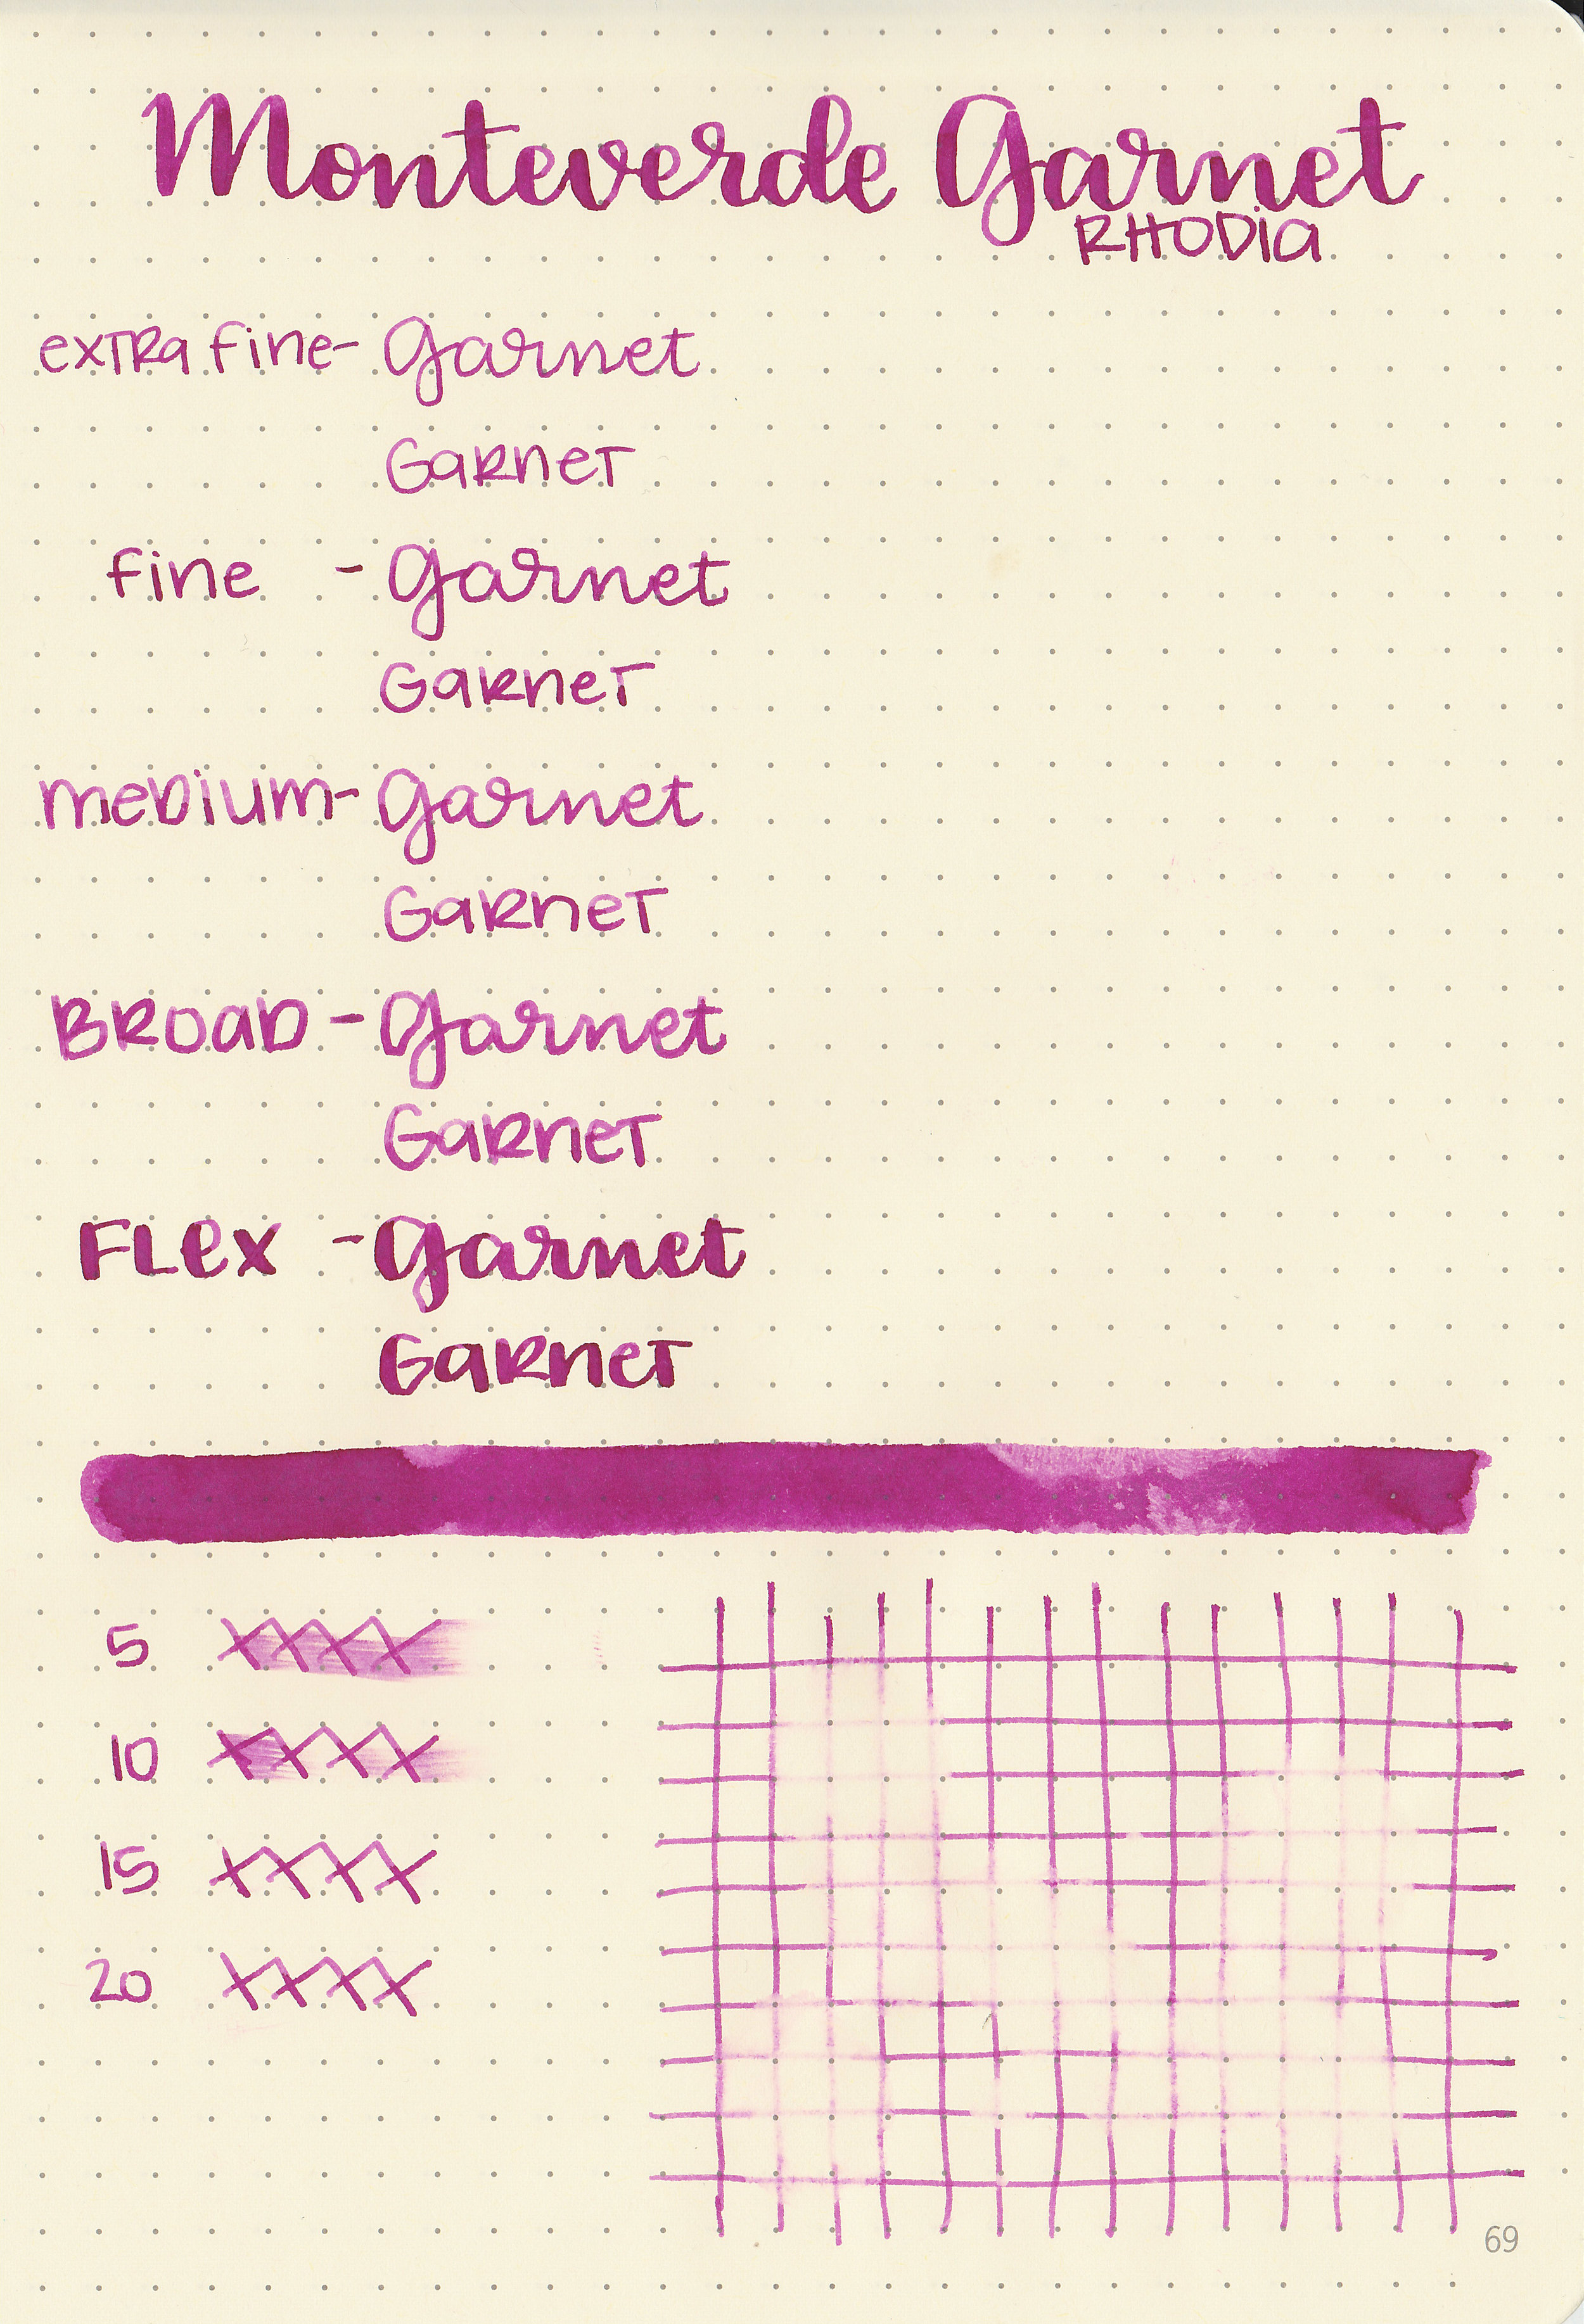 Monteverde Garnet
RHODIA
exTRa fine- Garnet
GaRneT
fine - Garnet
GaRneT
meDium- Garnet
GaRneT
BROaD - Garnet
GaRneT
FLex - Garnet
GaRneT
5
10
15
20
69